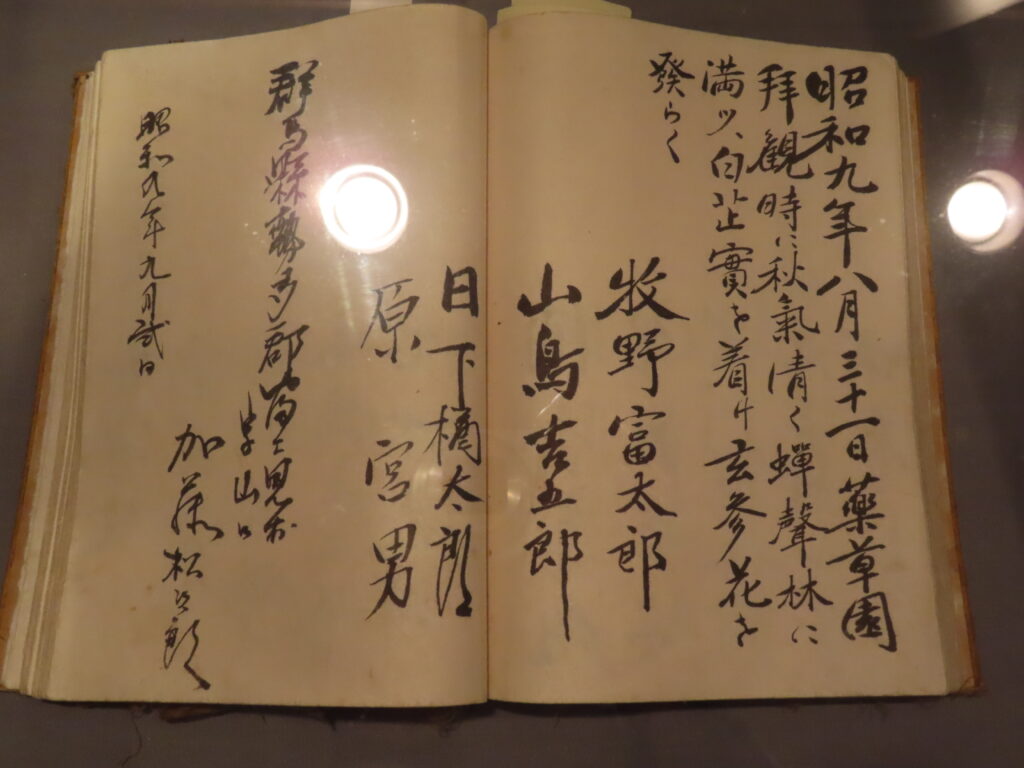 昭和九年八月三十一日藥草園
拜觀時に秋氣清く蟬聲林に
満ツ、白芷實を着け玄參花を
發らく
牧野富太郎
山鳥吉五郎
日下橘太郎
原 宮男
群馬縣勢多郡富士見村
字山口
昭和九年九月貳日
加藤松次郎